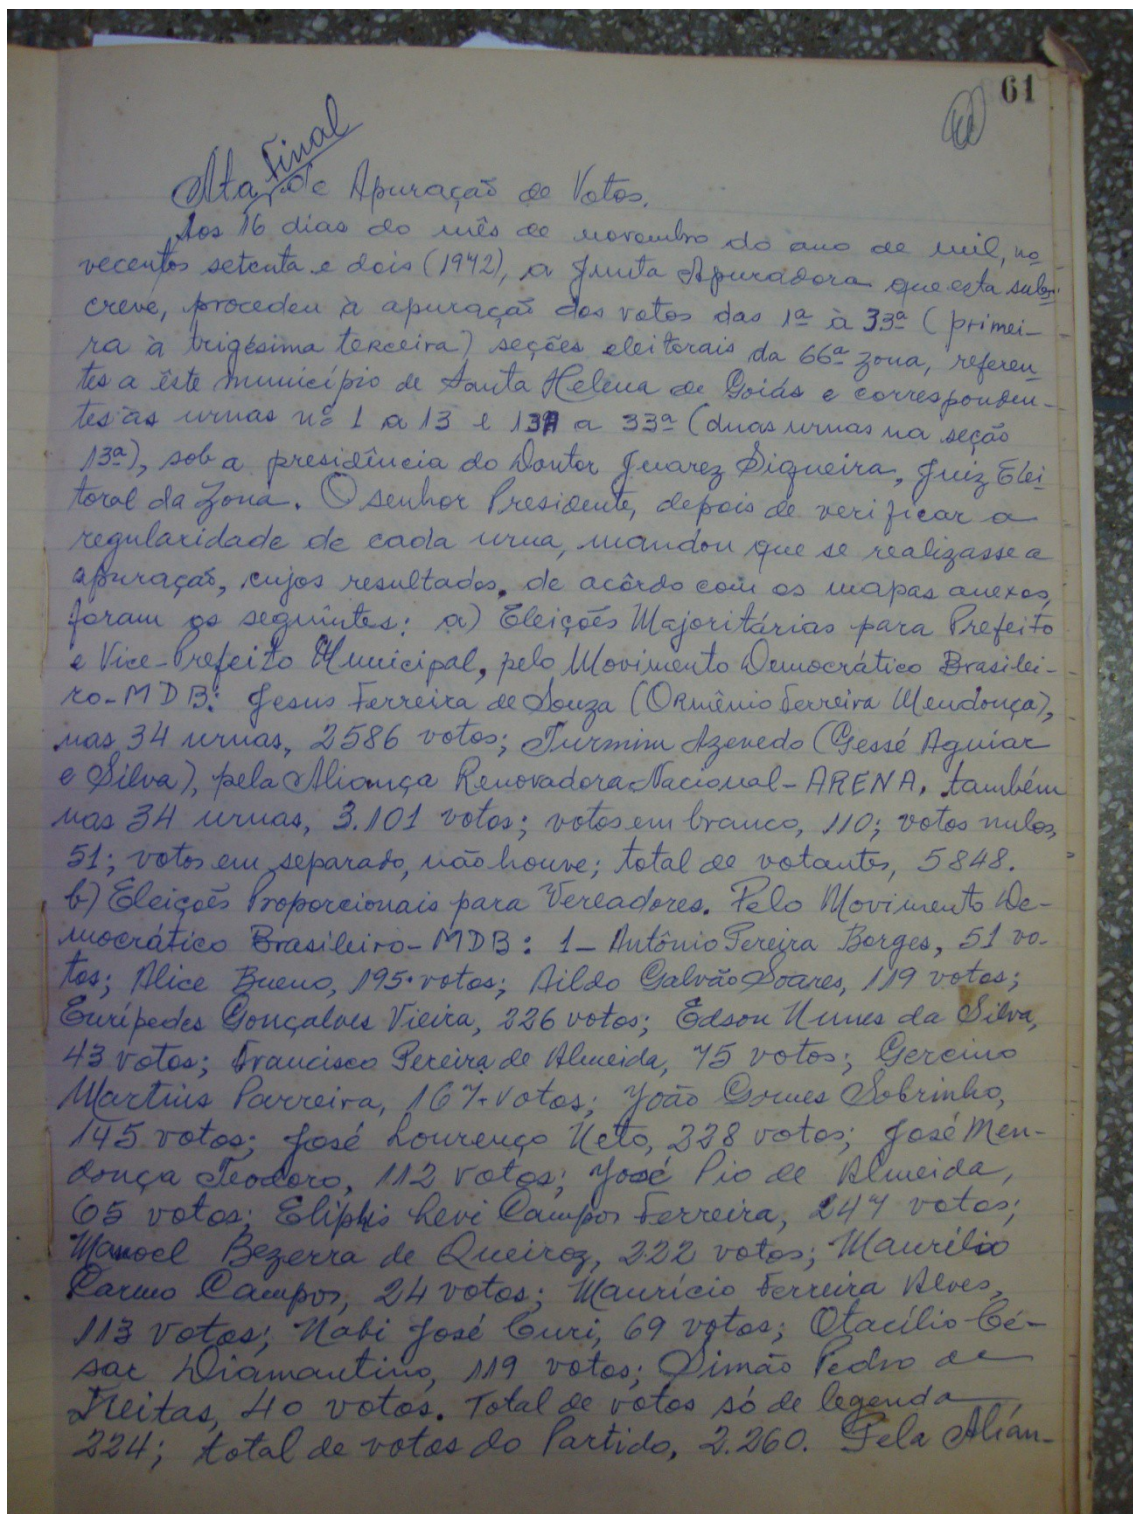 61
Ata Final de Apuração de Votos.
Aos 16 dias do mês de novembro do ano de mil, no-
vecentos setenta e dois (1972), a Junta Apuradora que esta subs-
creve, procedeu à apuração dos votos das 1ª à 33ª (primei-
ra à trigésima terceira) seções eleitorais da 66ª zona, referen-
tes a êste município de Santa Helena de Goiás e corresponden-
tes às urnas nº 1 a 13 e 13A a 33ª (duas urnas na seção
13ª), sob a presidência do Doutor Juarez Siqueira, Juiz Elei-
toral da Zona. O senhor Presidente, depois de verificar a
regularidade de cada urna, mandou que se realizasse a
apuração, cujos resultados, de acôrdo com os mapas anexos,
foram os seguintes: a) Eleições Majoritárias para Prefeito
e Vice-Prefeito Municipal, pelo Movimento Democrático Brasilei-
ro-MDB: Jesus Ferreira de Souza (Ormênio Ferreira Mendonça),
nas 34 urnas, 2586 votos; Turmim Azevedo (Gessé Aguiar
e Silva), pela Aliança Renovadora Nacional-ARENA, também
nas 34 urnas, 3.101 votos; votos em branco, 110; votos nulos,
51; votos em separado, não houve; total de votantes, 5848.
b) Eleições Proporcionais para Vereadores. Pelo Movimento De-
mocrático Brasileiro-MDB: 1- Antônio Pereira Borges, 51 vo-
tos; Alice Bueno, 195 votos; Aildo Galvão Soares, 119 votos;
Eurípedes Gonçalves Vieira, 226 votos; Edson Nunes da Silva,
43 votos; Francisco Pereira de Almeida, 75 votos; Gercino
Martins Parreira, 167 votos; João Gomes Sobrinho,
145 votos; José Lourenço Neto, 228 votos; José Men-
donça Teodoro, 112 votos; José Pio de Almeida,
65 votos; Eliphis Levi Campos Ferreira, 247 votos;
Manoel Bezerra de Queiroz, 222 votos; Maurílio
Carmo Campos, 24 votos; Maurício Ferreira Alves,
113 votos; Nabi José Curi, 69 votos; Otacílio Cé-
sar Diamantino, 119 votos; Simão Pedro de
Freitas, 40 votos. Total de votos só de legenda
224; total de votos do Partido, 2.260. Pela Alian-